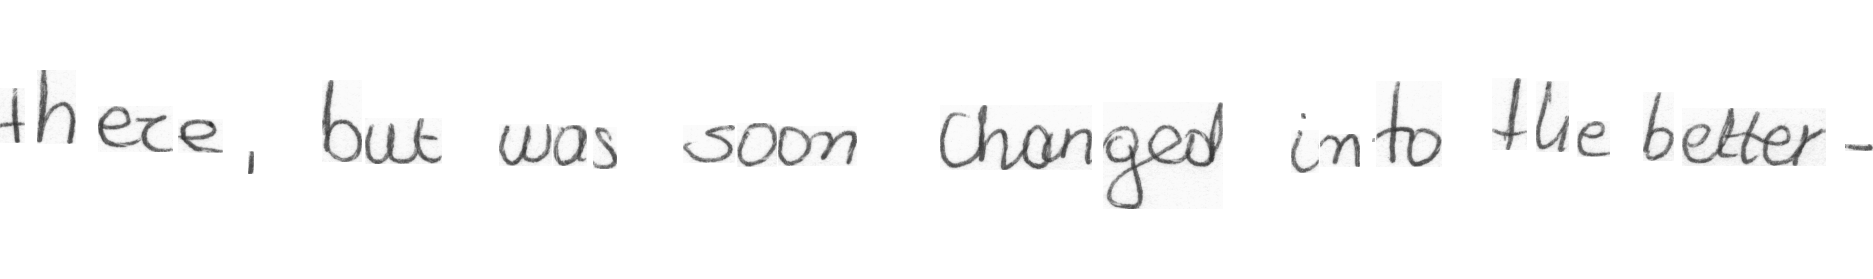 there, but was soon changed into the better-